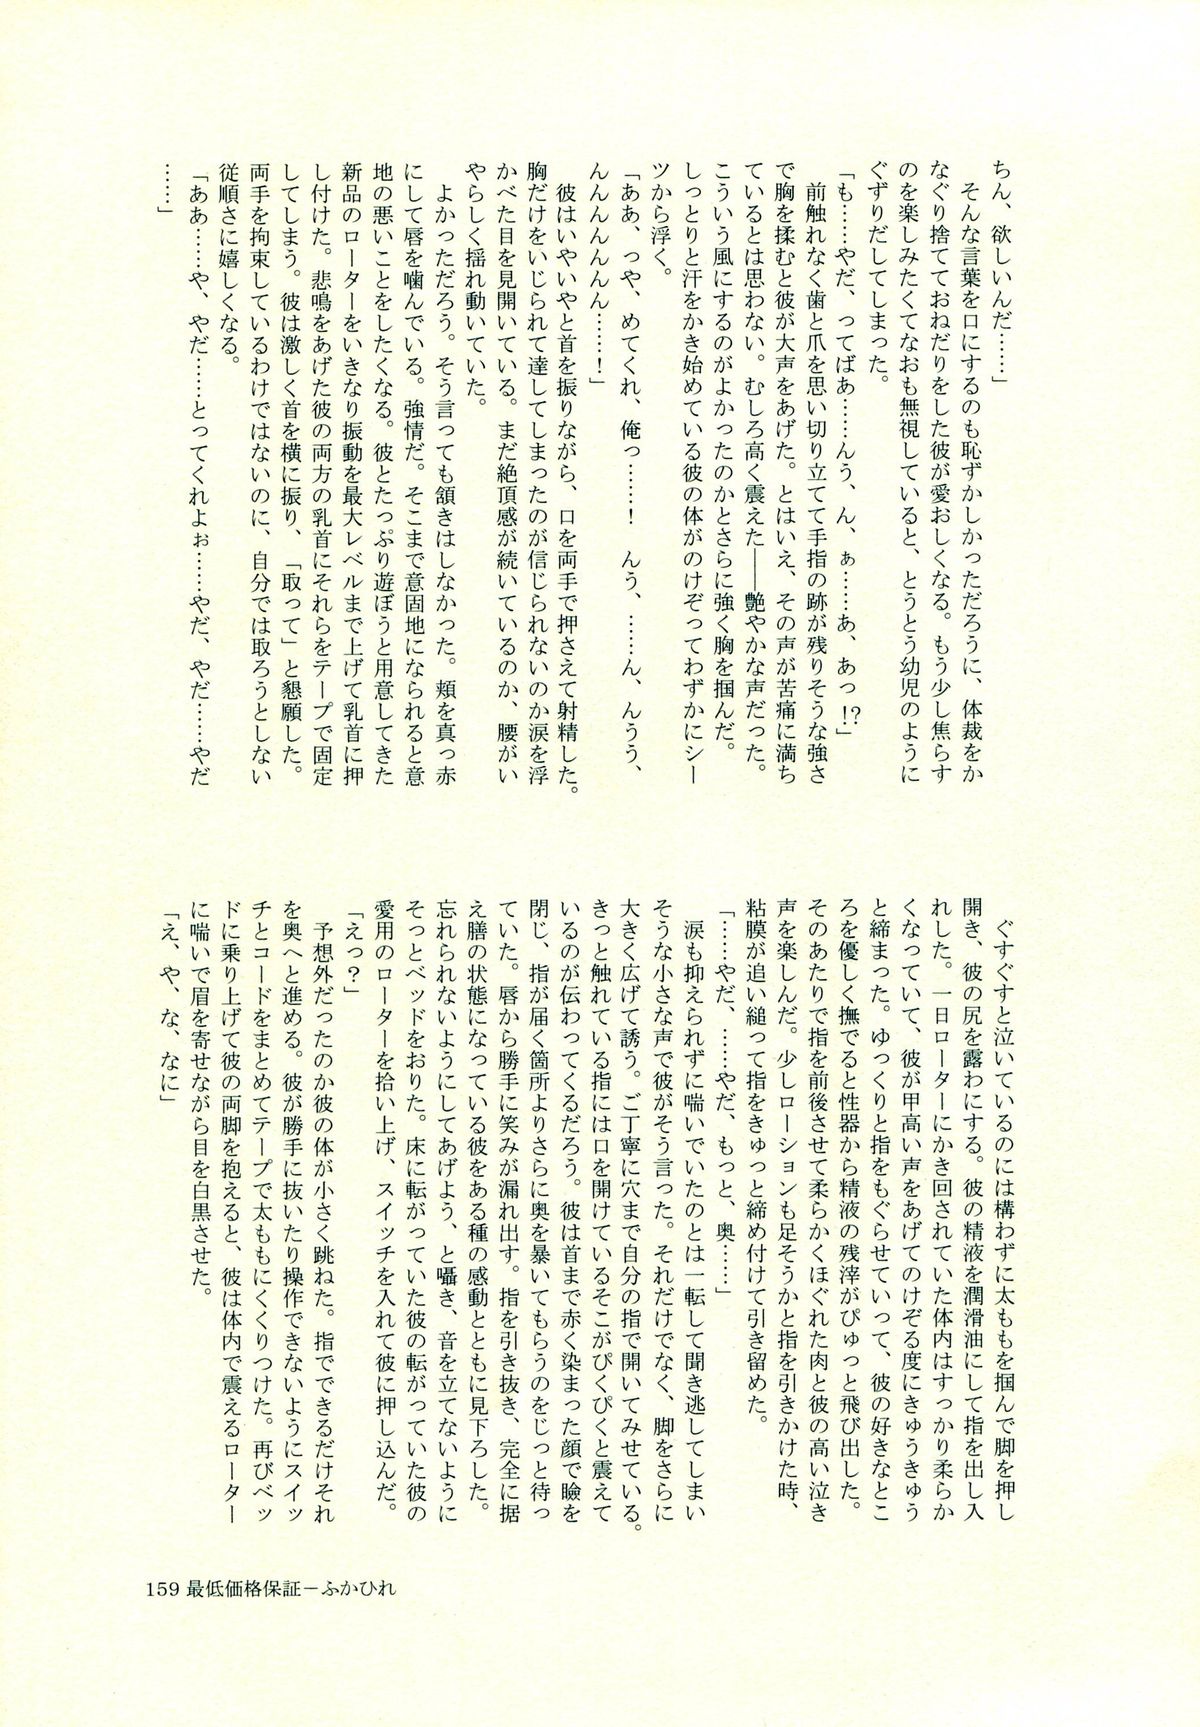 ちん、欲しいんだ……」
そんな言葉を口にするのも恥ずかしかっただろうに、体裁をか
なぐり捨てておねだりをした彼が愛おしくなる。もう少し焦らす
のを楽しみたくてなおも無視していると、とうとう幼児のように
ぐずりだしてしまった。
「も……やだ、ってばあ……んう、ん、ぁ……あ、あっ!?」
前触れなく歯と爪を思い切り立てて手指の跡が残りそうな強さ
で胸を揉むと彼が大声をあげた。とはいえ、その声が苦痛に満ち
ているとは思わない。むしろ高く震えた――艶やかな声だった。
こういう風にするのがよかったのかとさらに強く胸を掴んだ。
しっとりと汗をかき始めている彼の体がのけぞってわずかにシー
ツから浮く。
「ああ、っや、めてくれ、俺っ……！　んう、……ん、んうう、
んんんんんん……！」
彼はいやいやと首を振りながら、口を両手で押さえて射精した。
胸だけをいじられて達してしまったのが信じられないのか涙を浮
かべた目を見開いている。まだ絶頂感が続いているのか、腰がい
やらしく揺れ動いていた。
よかっただろう。そう言っても頷きはしなかった。頬を真っ赤
にして唇を噛んでいる。強情だ。そこまで意固地になられると意
地の悪いことをしたくなる。彼とたっぷり遊ぼうと用意してきた
新品のローターをいきなり振動を最大レベルまで上げて乳首に押
し付けた。悲鳴をあげた彼の両方の乳首にそれらをテープで固定
してしまう。彼は激しく首を横に振り、「取って」と懇願した。
両手を拘束しているわけではないのに、自分では取ろうとしない
従順さに嬉しくなる。
「ああ……や、やだ……とってくれよぉ……やだ、やだ……やだ
……」
ぐすぐすと泣いているのには構わずに太ももを掴んで脚を押し
開き、彼の尻を露わにする。彼の精液を潤滑油にして指を出し入
れした。一日ローターにかき回されていた体内はすっかり柔らか
くなっていて、彼が甲高い声をあげてのけぞる度にきゅうきゅう
と締まった。ゆっくりと指をもぐらせていって、彼の好きなとこ
ろを優しく撫でると性器から精液の残滓がぴゅっと飛び出した。
そのあたりで指を前後させて柔らかくほぐれた肉と彼の高い泣き
声を楽しんだ。少しローションも足そうかと指を引きかけた時、
粘膜が追い縋って指をきゅっと締め付けて引き留めた。
「……やだ、……やだ、もっと、奥……」
涙も抑えられずに喘いでいたのとは一転して聞き逃してしまい
そうな小さな声で彼がそう言った。それだけでなく、脚をさらに
大きく広げて誘う。ご丁寧に穴まで自分の指で開いてみせている。
きっと触れている指には口を開けているそこがぴくぴくと震えて
いるのが伝わってくるだろう。彼は首まで赤く染まった顔で瞼を
閉じ、指が届く箇所よりさらに奥を暴いてもらうのをじっと待っ
ていた。唇から勝手に笑みが漏れ出す。指を引き抜き、完全に据
え膳の状態になっている彼をある種の感動とともに見下ろした。
忘れられないようにしてあげよう、と囁き、音を立てないように
そっとベッドをおりた。床に転がっていた彼の転がっていた彼の
愛用のローターを拾い上げ、スイッチを入れて彼に押し込んだ。
「えっ？」
予想外だったのか彼の体が小さく跳ねた。指でできるだけそれ
を奥へと進める。彼が勝手に抜いたり操作できないようにスイッ
チとコードをまとめてテープで太ももにくくりつけた。再びベッ
ドに乗り上げて彼の両脚を抱えると、彼は体内で震えるローター
に喘いで眉を寄せながら目を白黒させた。
「え、や、な、なに」
159 最低価格保証－ふかひれ